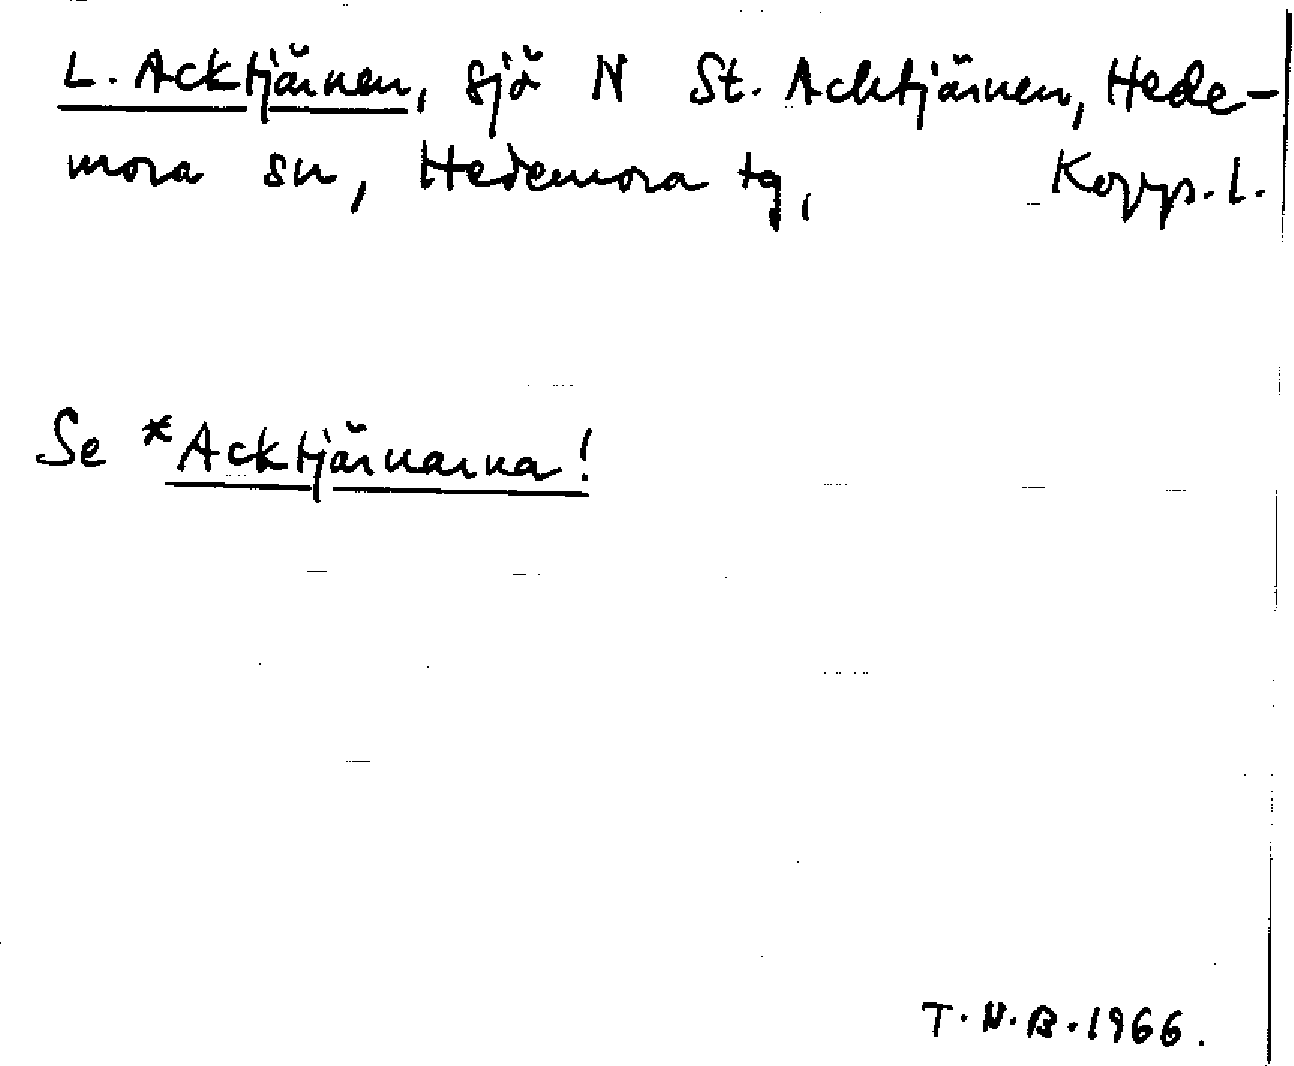 L. Acktjärnen, sjö N St. Acktjärnen, Hede-
mora sn, Hedemora tg, Kopp. l.
Se *Acktjärnarna!
T.N.B.1966.